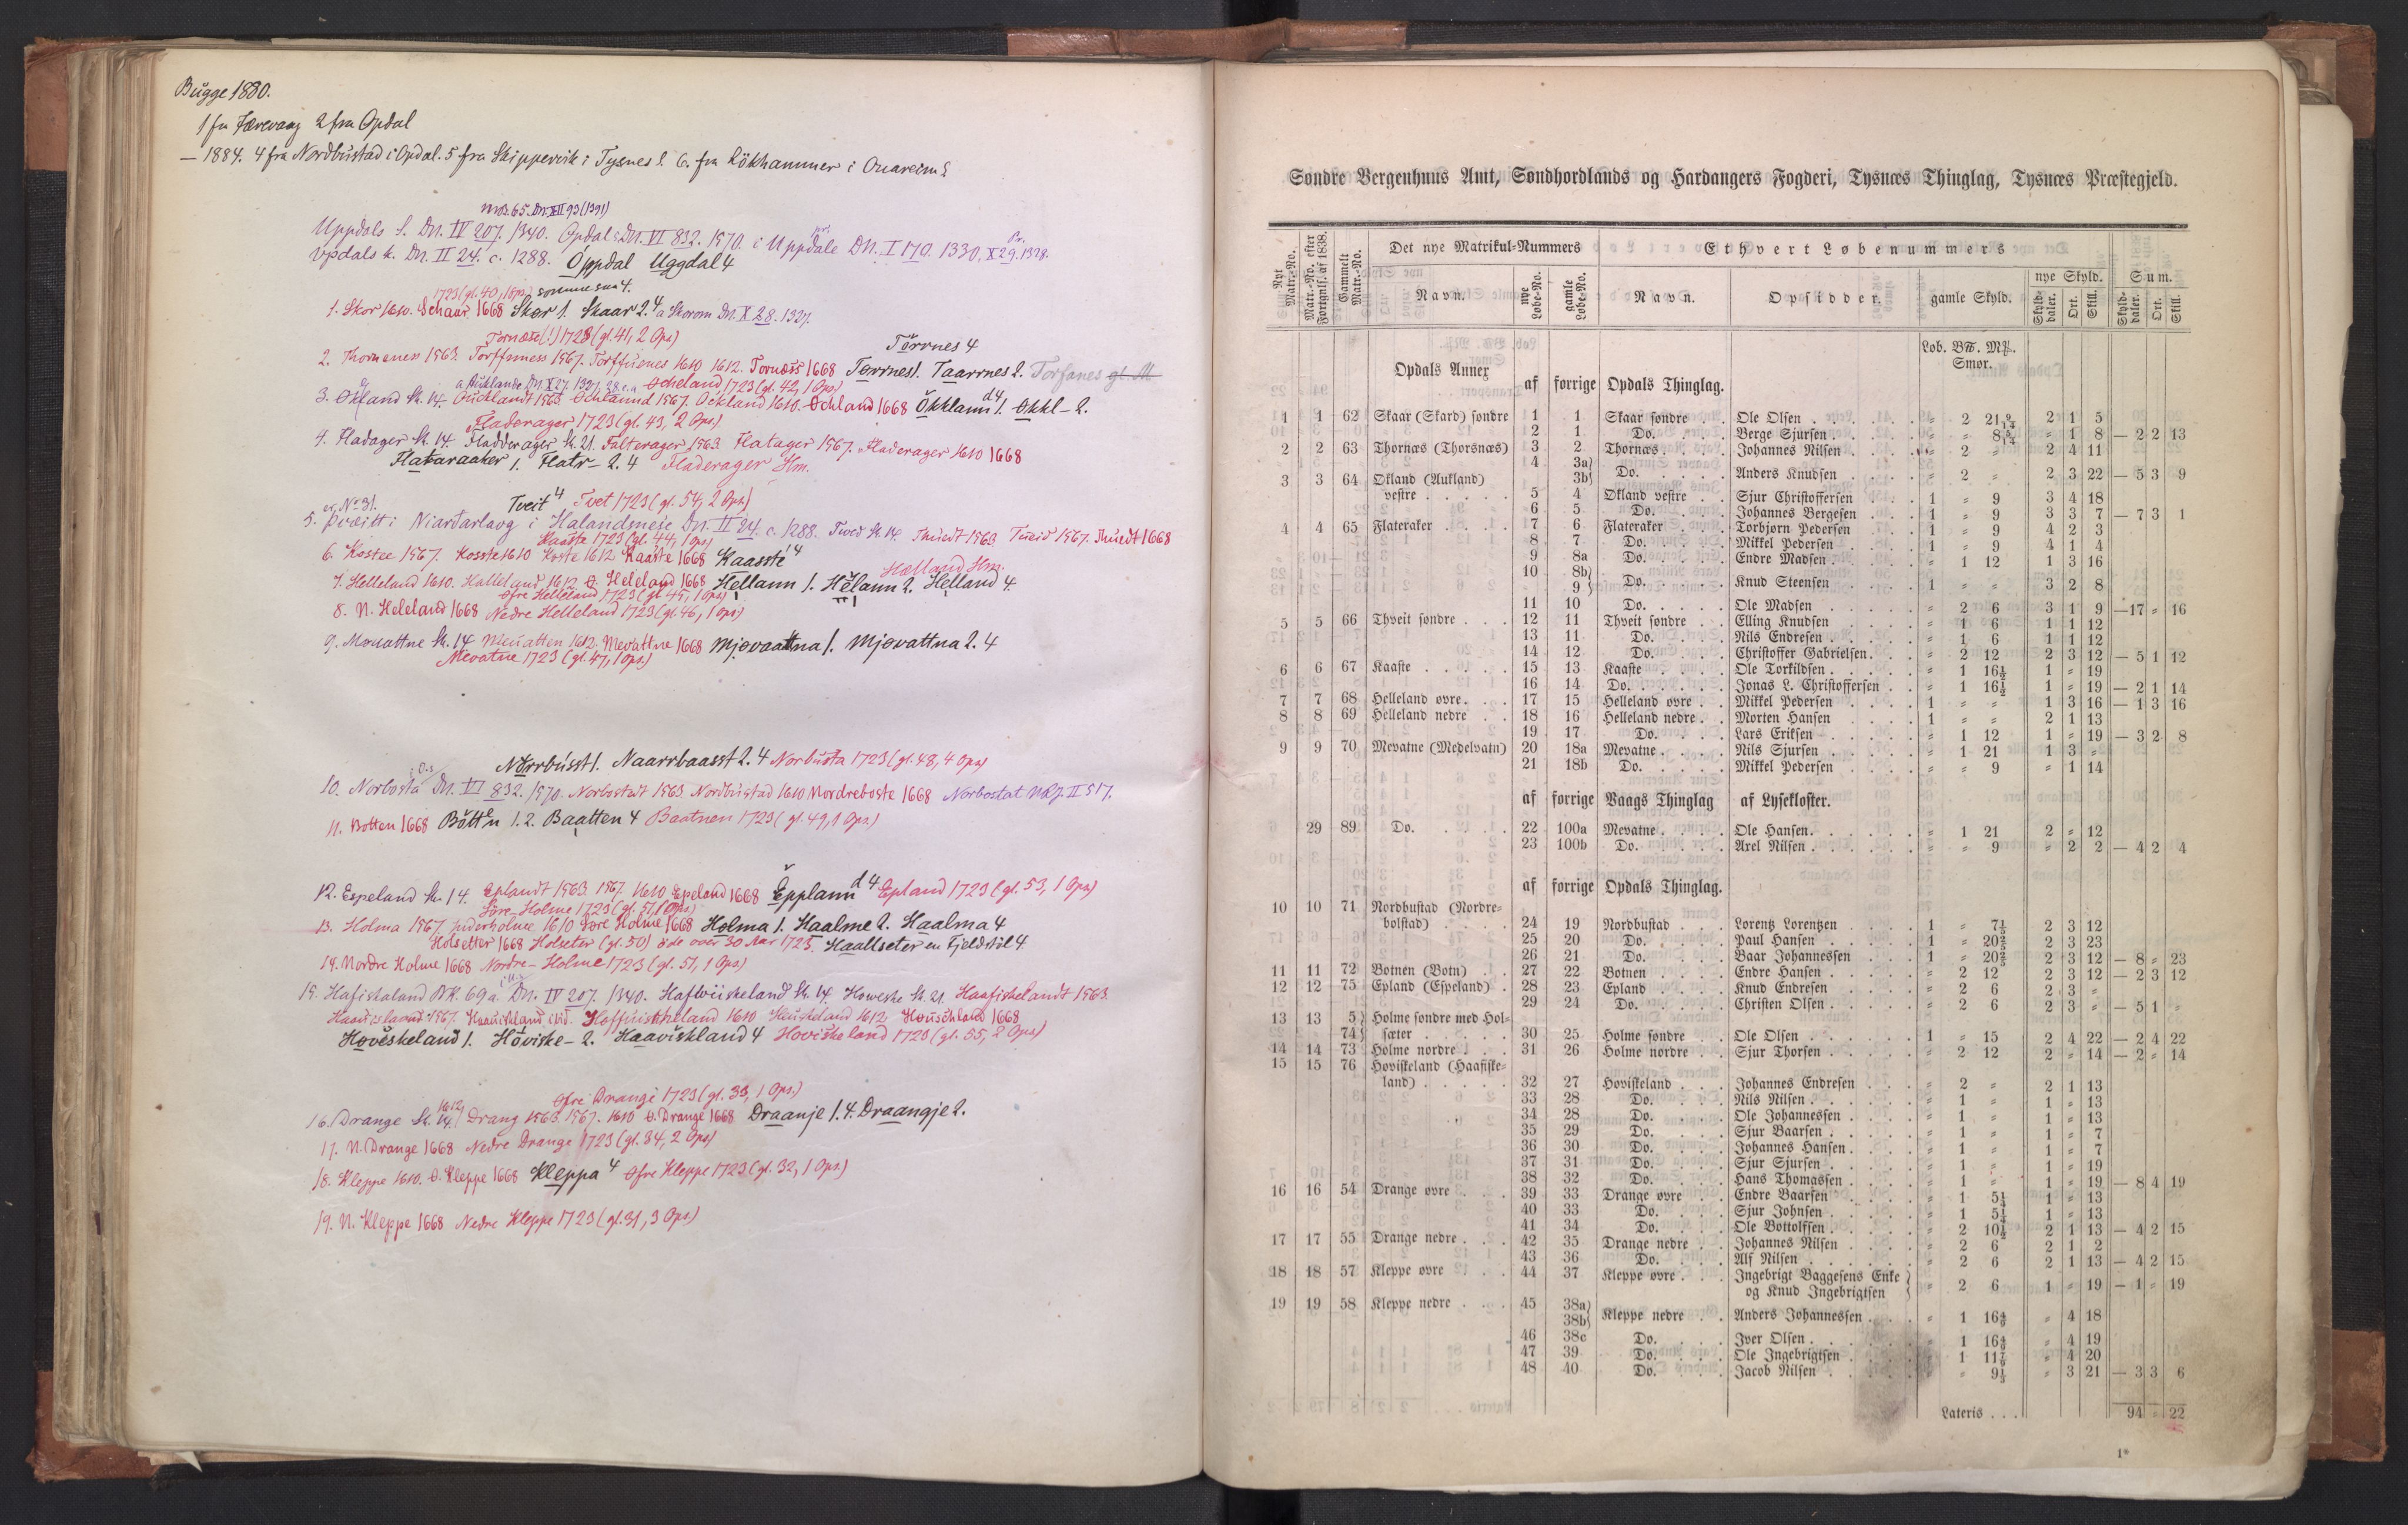 Bugge 1880.
1 fra Færevaag 2 fra Opdal
— 1884. 4 fra Nordbustad i Opdal. 5 fra Skippervik i Tysnes S. 6. fra Lökhammer i
Dn. XII 93 (1391)
Uppdals S. Dn. IV 207. 1340. Opdals Dn. VI 832. 1570. i Uppdale DN. I 170. 1330, X 29. 1328.
Vpdals k. Dn. II 24. c. 1288. Oppdal Uggdal 4
1723 (gl. 40, 1 Ops.) somme sun 4.
1. Skor 1610. Schaar 1668 Skor 1. Skaar 2. 4 a Skorom Dn. X 28. 1327.
Tornæse (!) 1728 (gl. 41, 2 Ops) Törrnes 4
2. Thorneness 1563. Torffneness 1567. Torffuenes 1610 1612. Tornæss 1668 Torrnes 1. Taarrnes 2. Torsnes gl. M
a Auklande Dn. X 27. 1327, 28. c. a Ocheland 1723 (gl. 42, 1 Ops)
3. Okland St. 14. Ouchlandt 1563. Ochlannd 1567. Ockland 1610. Ochland 1668 Ökklann d4 1. Okkl- 2.
Fladerager 1723 (gl. 43, 2 Ops)
4. Fladager St. 14. Fladderager St. 21. Falterager 1563 Flatager 1567. Fladerager 1610 1668
Flataraaker 1. Flatr- 2. 4 Fladerager Hm.
er No 31. Tveit 4 Tvet 1723 (gl. 54, 2 Ops)
5. þveitt i Niarðarlavg i Halandmeje Dn. II 24. c. 1288. Tved St. 14. Thuedt 1563. Tveid 1567. Thuedt 1668
Kaaste 1723 (gl. 44, 1 Ops)
6. Kostee 1567. Kosste 1610 Koste 1612 Kaaste 1668 Kaasste 4
Hælland Hm.
7. Helleland 1610. Halleland 1612 O. Heleland 1668 Hellann 1. Helann 2. Helland 4.
Ofre Helleland 1723 (gl. 45, 1 Ops)
8. N. Heleland 1668 Nedre Helleland 1723 (gl. 46, 1 Ops)
9. Mouattne St. 14 Meuatten 1612. Mevattne 1668 Mjovaattna 1. Mjovattna 2. 4
Mevatne 1723 (gl. 47, 1 Ops.)
Nörrbusst 1. Naarrbaasst 2. 4 Norbusta 1723 (gl. 48, 4 Ops)
10. Norbosta Dn. VI 832. 1570. Norbostadt 1563. Nordbustad 1610 Nordreboste 1668 Norbostat NRJ. II 517.
11. Botten 1668 Bötten 1. 2. Baatten 4 Baatnen 1723 (gl. 49, 1 Ops.)
12. Espeland St. 14. Eplandt 1563. 1567. 1610 Epeland 1668 Epplann d 4 Epland 1723 (gl. 53, 1 Ops)
Söre-Holme 1723 (gl. 57, 1 Ops)
13. Holma 1567 Synderholme 1610 Söre Holme 1668 Holma 1. Haalme 2. Haalma 4
Holsetter 1668 Holseter (gl. 50) öde over 30 Aar 1723. Haallseter en Fjeldstöl 4
14. Nordre Holme 1668 Nordre-Holme 1723 (gl. 51, 1 Ops)
15. Hafiskaland BK. 69a. Dn. IV 207. 1340. Haflviiskeland St. 14. Howeske St. 21. Haafiskelandt 1563.
1567. Haauiskland ibid. Hoffuiskheland 1610 Heuskeland 1612 Houschland 1668
Hoveskeland 1. Höviske- 2. Haaviskland 4 Hoviskeland 1723 (gl. 55, 2 Ops)
Ofre Drange 1723 (gl. 33, 1 Ops.)
16. Drange St. 14. 1612 Drang 1563. 1567. 1610 O. Drange 1668 Draanje 1. 4. Draangje 2.
17. N. Drange 1668 Nedre Drange 1723 (gl. 34, 2 Ops)
18. Kleppe 1610. O. Kleppe 1668 Kleppa 4 Ofre Kleppe 1723 (gl. 32, 1 Ops.)
19. N. Kleppe 1668 Nedre Kleppe 1723 (gl. 31, 3 Ops.)
Søndre Bergenhuus Amt, Søndhordlands og Hardangers Fogderi, Tysnæs Thinglag, Tysnæs Præstegjeld.
Nyt Matr.-No. Matr.-No. efter Fortgnls. af 1838. Gammelt Matr.-No. Det nye Matrikul-Nummers Ethvert Løbenummers
Navn. nye Løbe-No. gamle Løbe-No. Navn. Opsidder. gamle Skyld. nye Skyld. Sum.
Skylddaler. Ort. Skill. Skylddaler. Ort. Skill.
Løb. B℔. M℔. Smør.
Opdals Annex af forrige Opdals Thinglag.
1 1 62 Skaar (Skard) søndre 1 1 Skaar søndre Ole Olsen " 2 21 9/14 2 1 5
2 1 Do. Berge Sjursen " " 8 5/14 " 1 8 — 2 2 13
2 2 63 Thornæs (Thorsnæs) 3 2 Thornæs Johannes Nilsen " 2 " 2 4 11
4 3a) 3b) Do. Anders Knudsen " 2 " 2 3 22 — 5 3 9
3 3 64 Økland (Aukland) vestre 5 4 Økland vestre Sjur Christoffersen 1 " 9 3 4 18
6 5 Do. Johannes Bergesen 1 " 9 3 3 7 — 7 3 1
4 4 65 Flateraker 7 6 Flateraker Torbjørn Pedersen 1 " 9 4 2 3
8 7 Do. Mikkel Pedersen 1 " 9 4 1 4
9 8a Do. Endre Madsen " 1 12 1 3 16
10 8b) 9) Do. Knud Steensen 1 " " 3 2 8
11 10 Do. Ole Madsen " 2 6 3 1 9 — 17 " 16
5 5 66 Thveit søndre 12 11 Thveit søndre Elling Knudsen " 1 6 1 1 12
13 11 Do. Nils Endresen " 1 6 1 1 12
14 12 Do. Christoffer Gabrielsen " 2 12 2 3 12 — 5 1 12
6 6 67 Kaaste 15 13 Kaaste Ole Torkildsen " 1 16½ 1 " 19
16 14 Do. Jonas L. Christoffersen " 1 16½ 1 " 19 — 2 1 14
7 7 68 Helleland øvre 17 15 Helleland øvre Mikkel Pedersen 1 " " 1 3 16 — 1 3 16
8 8 69 Helleland nedre 18 16 Helleland nedre Morten Hansen 1 " " 2 1 13
19 17 Do. Lars Eriksen " 1 12 1 " 19 — 3 2 8
9 9 70 Mevatne (Medelvatn) 20 18a Mevatne Nils Sjursen " 1 21 1 3 "
21 18b Do. Mikkel Pedersen " " 9 " 1 14
af forrige Vaags Thinglag af Lysekloster.
29 89 Do. 22 100a Mevatne Ole Hansen " 1 21 2 " 12
23 100b Do. Axel Nilsen " " 9 " 2 2 — 4 2 4
af forrige Opdals Thinglag.
10 10 71 Nordbustad (Nordrebolstad) 24 19 Nordbustad Lorentz Lorentzen 1 " 7½ 2 3 12
25 20 Do. Paul Hansen 1 " 20⅖ 2 3 23
26 21 Do. Baar Johannessen 1 " 20⅖ 2 3 12 — 8 " 23
11 11 72 Botnen (Botn) 27 22 Botnen Endre Hansen " 2 12 2 3 12 — 2 3 12
12 12 75 Epland (Espeland) 28 23 Epland Knud Endresen " 2 6 2 3 "
29 24 Do. Christen Olsen " 2 6 2 3 " — 5 1 "
13 13 5) 74) Holme søndre med Holsæter 30 25 Holme søndre Ole Olsen 1 " 15 2 4 22 — 2 4 22
14 14 73 Holme nordre 31 26 Holme nordre Sjur Thorsen " 2 12 2 " 14 — 2 " 14
15 15 76 Hoviskeland (Haafiskeland) 32 27 Hoviskeland Johannes Endresen " 2 " 2 1 13
33 28 Do. Nils Nilsen " 1 " 1 " 13
34 28 Do. Ole Johannessen " 1 " 1 " 13
35 29 Do. Sjur Baarsen " 1 " 1 " 7
36 30 Do. Johannes Hansen " 1 " 1 " 7
37 31 Do. Sjur Sjursen " 1 " 1 " 19
38 32 Do. Hans Thomassen " 1 " 1 " 19 — 8 4 19
16 16 54 Drange øvre 39 33 Drange øvre Endre Baarsen " 1 5¼ 1 " 13
40 33 Do. Sjur Johnsen " 1 5¼ 1 " 13
41 34 Do. Ole Bottolfsen " 2 10½ 2 1 13 — 4 2 15
17 17 55 Drange nedre 42 35 Drange nedre Johannes Nilsen " 2 6 2 1 2
43 36 Do. Alf Nilsen " 2 6 2 1 13 — 4 2 15
18 18 57 Kleppe øvre 44 37 Kleppe øvre Ingebrigt Baggesens Enke og Knud Ingebrigtsen " 2 6 1 " 19 — 1 " 19
19 19 58 Kleppe nedre 45 38a) 38b) Kleppe nedre Anders Johannessen " 1 16 4/9 " 4 18
46 38c Do. Iver Olsen " 1 16 4/9 " 4 19
47 39 Do. Ole Ingebrigtsen " 1 11 7/9 " 4 20
48 40 Do. Jacob Nilsen " " 9⅓ " 3 21 — 3 3 6
Lateris 94 " 22
1*